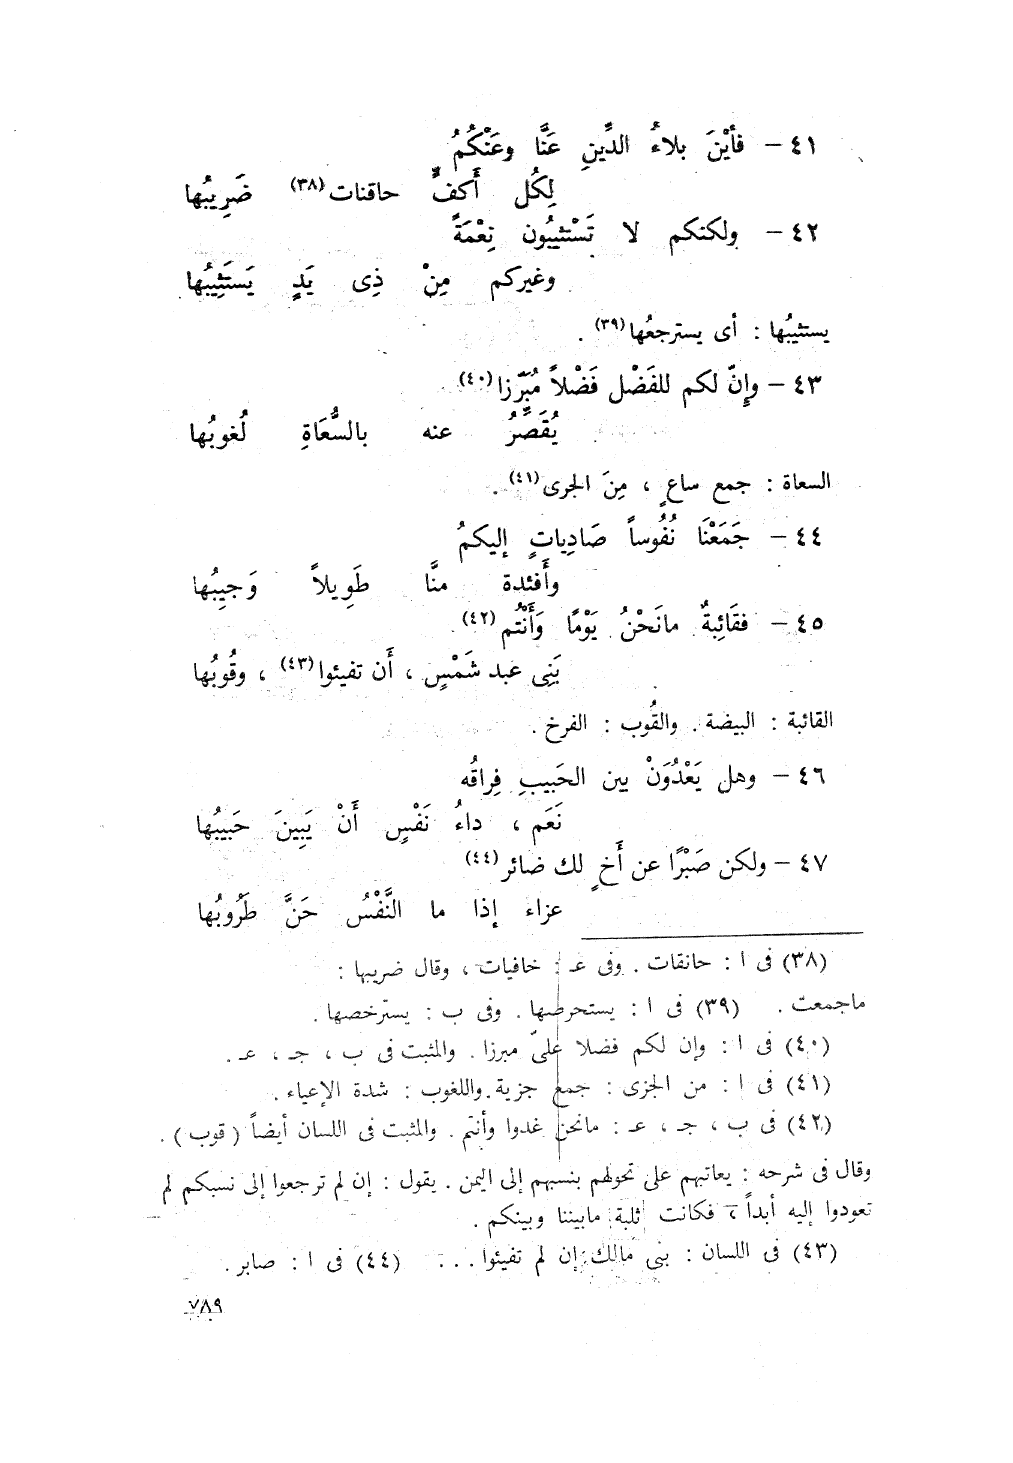 ٤١ – فأيْنَ بلاءُ الدِّينِ عَنَّا وعَنْكُمُ
لِكُل أَكفٍّ حاقنات(٣٨) ضَرِيبُها
٤٢ – ولكنكم لا تَسْتثيبُون نِعْمَةً
وغيركم مِنْ ذِى يَدٍ يَستَثِيبُها
يستثيبُها : أى يسترجعُها(٣٩) .
٤٣ – وإِنّ لكم للفَضْل فَضْلاً مُبَرِّزا(٤٠)
يُقَصِّرُ عنه بالسُّعَاةِ لُغوبُها
السعاة : جمع ساعٍ ، مِنَ الجرى(٤١) .
٤٤ – جَمَعْنَا نُفُوساً صَادِياتٍ إليكمُ
وأَفئدة منَّا طَوِيلاً وَجيبُها
٤٥ – فقَائِبةٌ مانَحْنُ يَوْمًا وَأَنْتُم(٤٢)
بَنِى عبد شَمْسٍ ، أَن تفيئوا(٤٣) ، وقُوبُها
القائبة : البيضة . والقُوب : الفرخ .
٤٦ – وهل يَعْدُوَنْ بين الحَبيبِ فِراقُه
نَعَم ، داءُ نَفْسٍ أَنْ يَبِينَ حَبيبُها
٤٧ – ولكن صَبْرًا عن أَخٍ لك ضائر(٤٤)
عزاء إذا ما النَّفْسُ حَنَّ طَرُوبُها
(٣٨) فى ا : حانقات . وفى عـ : خافيات ، وقال ضريبها :
ماجمعت . (٣٩) فى ا : يستحرضها . وفى ب : يسترخصها .
(٤٠) فى ا : وإن لكم فضلا علىّ مبرزا . والمثبت فى ب ، جـ ، عـ .
(٤١) فى ا : من الجزى : جمع جزية . واللغوب : شدة الإعياء .
(٤٢) فى ب ، جـ ، عـ : مانحن غدوا وأنتم . والمثبت فى اللسان أيضاً ( قوب ) .
وقال فى شرحه : يعاتبهم على تحولهم بنسبهم إلى اليمن . يقول : إن لم ترجعوا إلى نسبكم لم
تعودوا إليه أبداً ، فكانت ثلبة مابيننا وبينكم .
(٤٣) فى اللسان : بنى مالك إن لم تفيئوا . . . (٤٤) فى ا : صابر .
٧٨٩